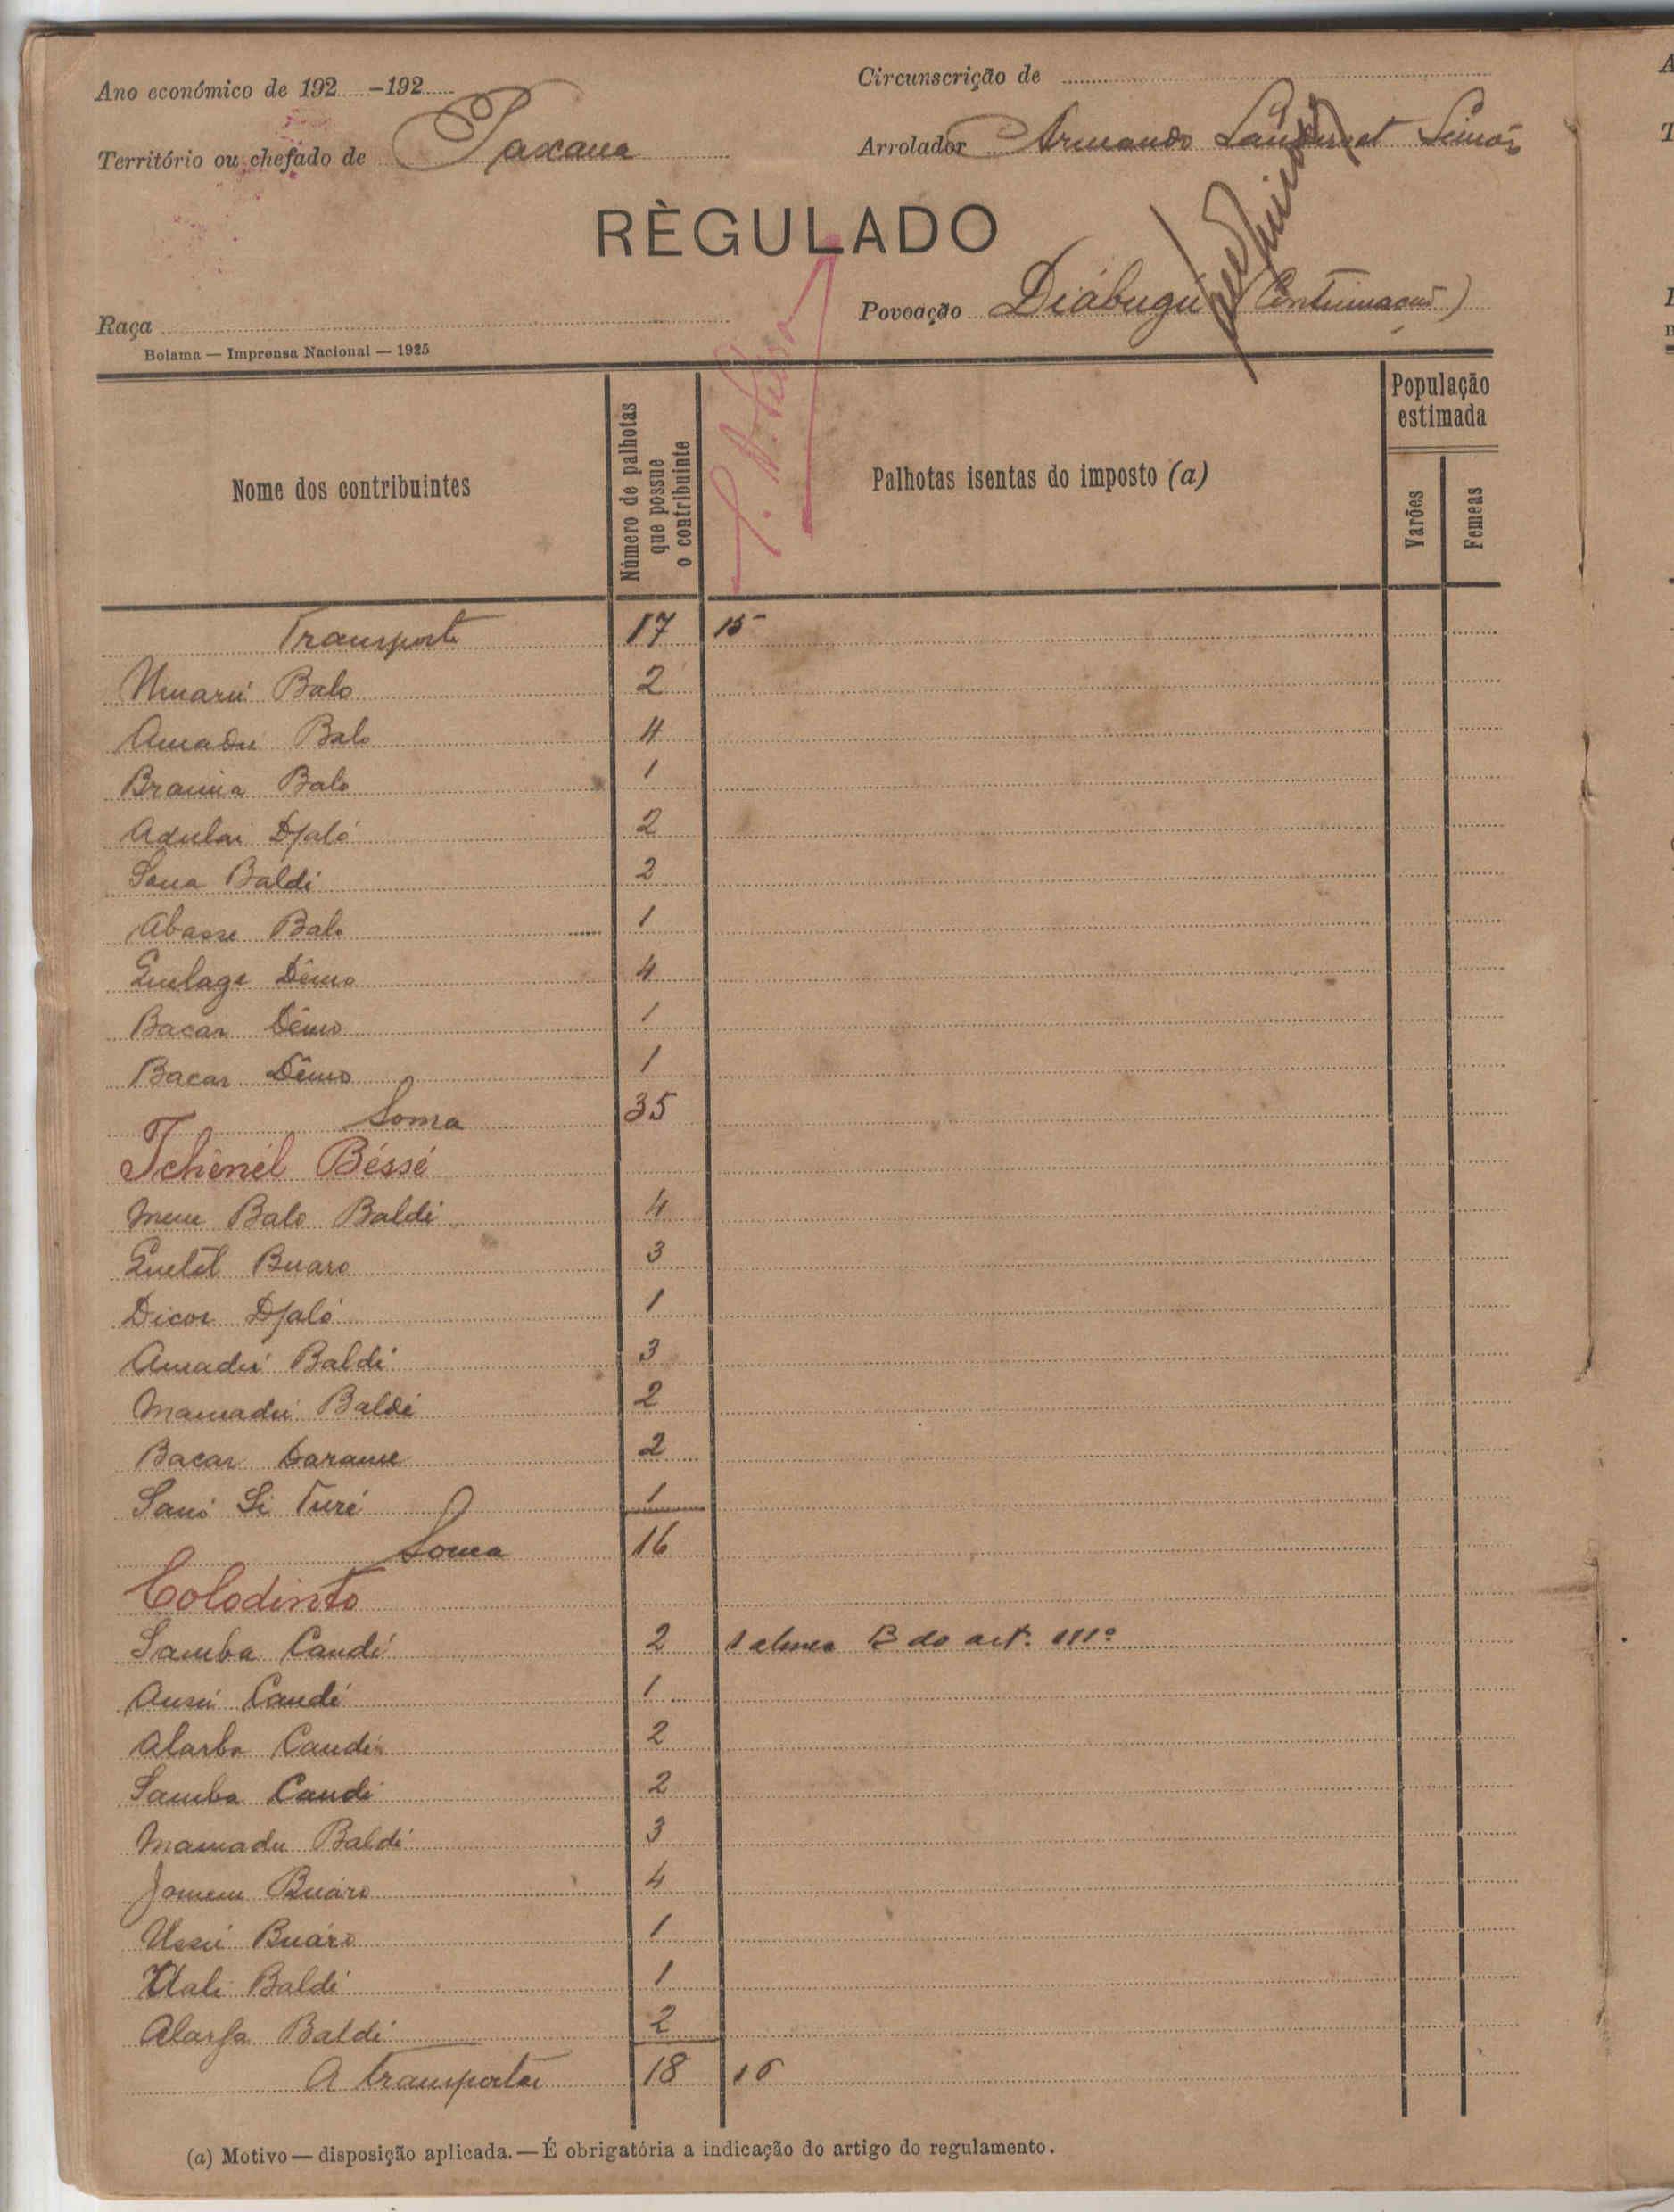 Ano económico de 192 -192
Circunscrição de
Território ou chefado de Paxana
Arrolador Armando
RÈGULADO
Raça
Povoação Diábugu (Continuação)
Bolama — Imprensa Nacional — 1925
Nome dos contribuintes
Número de palhotas que possue o contribuinte
Palhotas isentas do imposto (a)
População estimada
Varões
Femeas
Transporte 17 15
Umarú Balo 2
Amadú Balo 4
Braima Balo 1
Adulai Djaló 2
Baldi 2
Abasse Balo 1
Quelage Demo 4
Bacar Demo 1
Bacar Demo 1
Soma 35
Tchênél Béssé
Balo Baldi 4
Buaro 3
Dicor Djaló 1
Amadú Baldi 3
Mamadú Baldé 2
Bacar 2
Saná Si Turé 1
Soma 16
Colodinto
Samba Candé 2 1 B do art. 111º
Candé 1
Alarba Candé 2
Samba Candi 2
Mamadu Baldé 3
Buáro 4
Ussú Buáro 1
Uali Baldé 1
Alarfa Baldé 2
A transportar 18 16
(a) Motivo — disposição aplicada. — É obrigatória a indicação do artigo do regulamento.